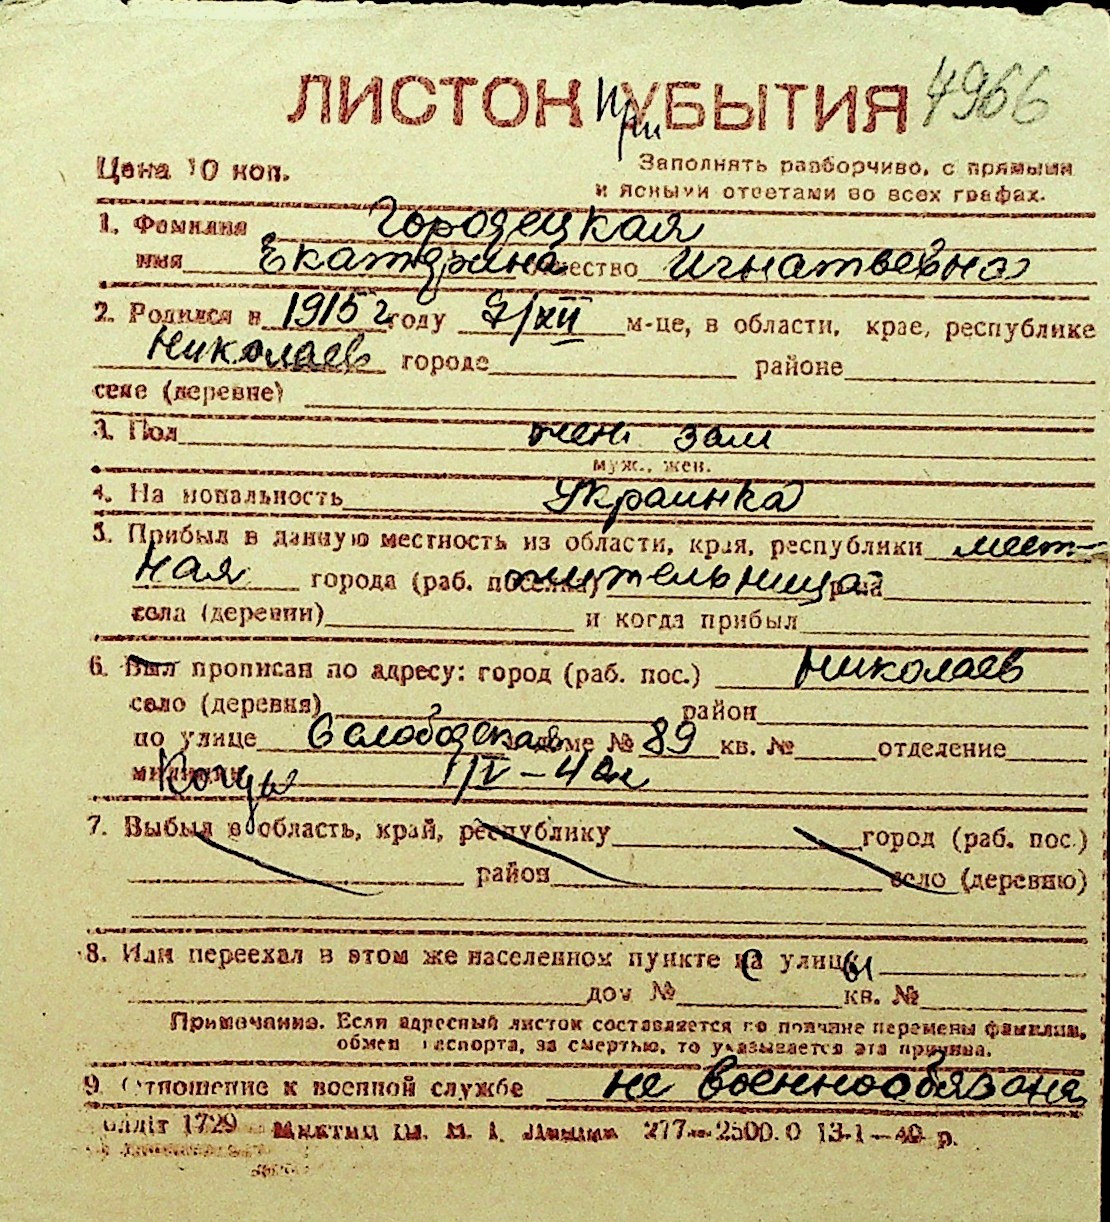 ЛИСТОК при УБЫТИЯ 4966
Цена 10 коп.
Заполнять разборчиво, с прямыми
и ясными ответами во всех графах.
1. Фамилия Городецкая
имя Екатерина отчество Игнатьевна
2. Родился в 1915 г году 7/XII м-це, в области, крае, республике
Николаев городе районе
селе (деревне)
3. Пол жен зам
муж., жен.
4. Национальность Украинка
5. Прибыл в данную местность из области, края, республики мест-
ная города (раб. поселка) жительница рна
села (деревни) и когда прибыл
6. Был прописан по адресу: город (раб. пос.) Николаев
село (деревня) район
по улице Слободская доме № 89 кв. № отделение
милиции Когды 1/IV-
7. Выбыл в область, край, республику город (раб. пос.)
район село (деревню)
8. Или переехал в этом же населенном пункте на с улицы
дом № кв. №
Примечание. Если адресный листок составляется по причине перемены фамилии,
обмен паспорта, за смертью, то указывается эта причина.
9. Отношение к военной службе не военнообязана
1729 277—2500. 0 13-1—40 р.